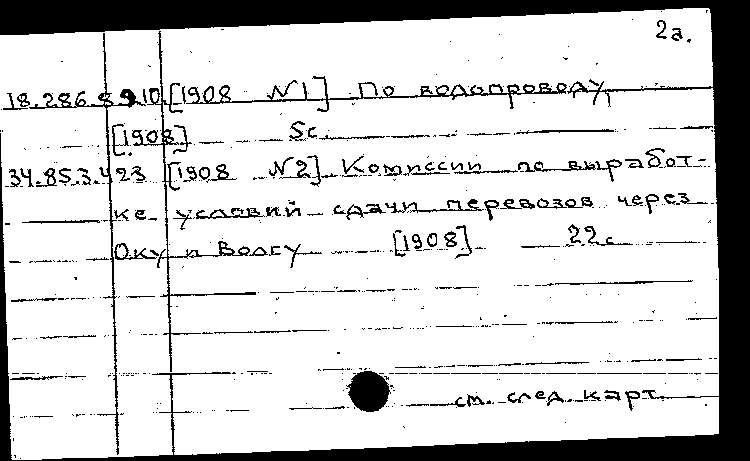 2а.
18.286.8.910. [1908 №1] По водопроводу,
[1908] 5с.
34.85.3.423 [1908 №2] Комиссии по выработ-
ке условий сдачи перевозов через
Оку и Волгу [1908] 22с.
см. след. карт.